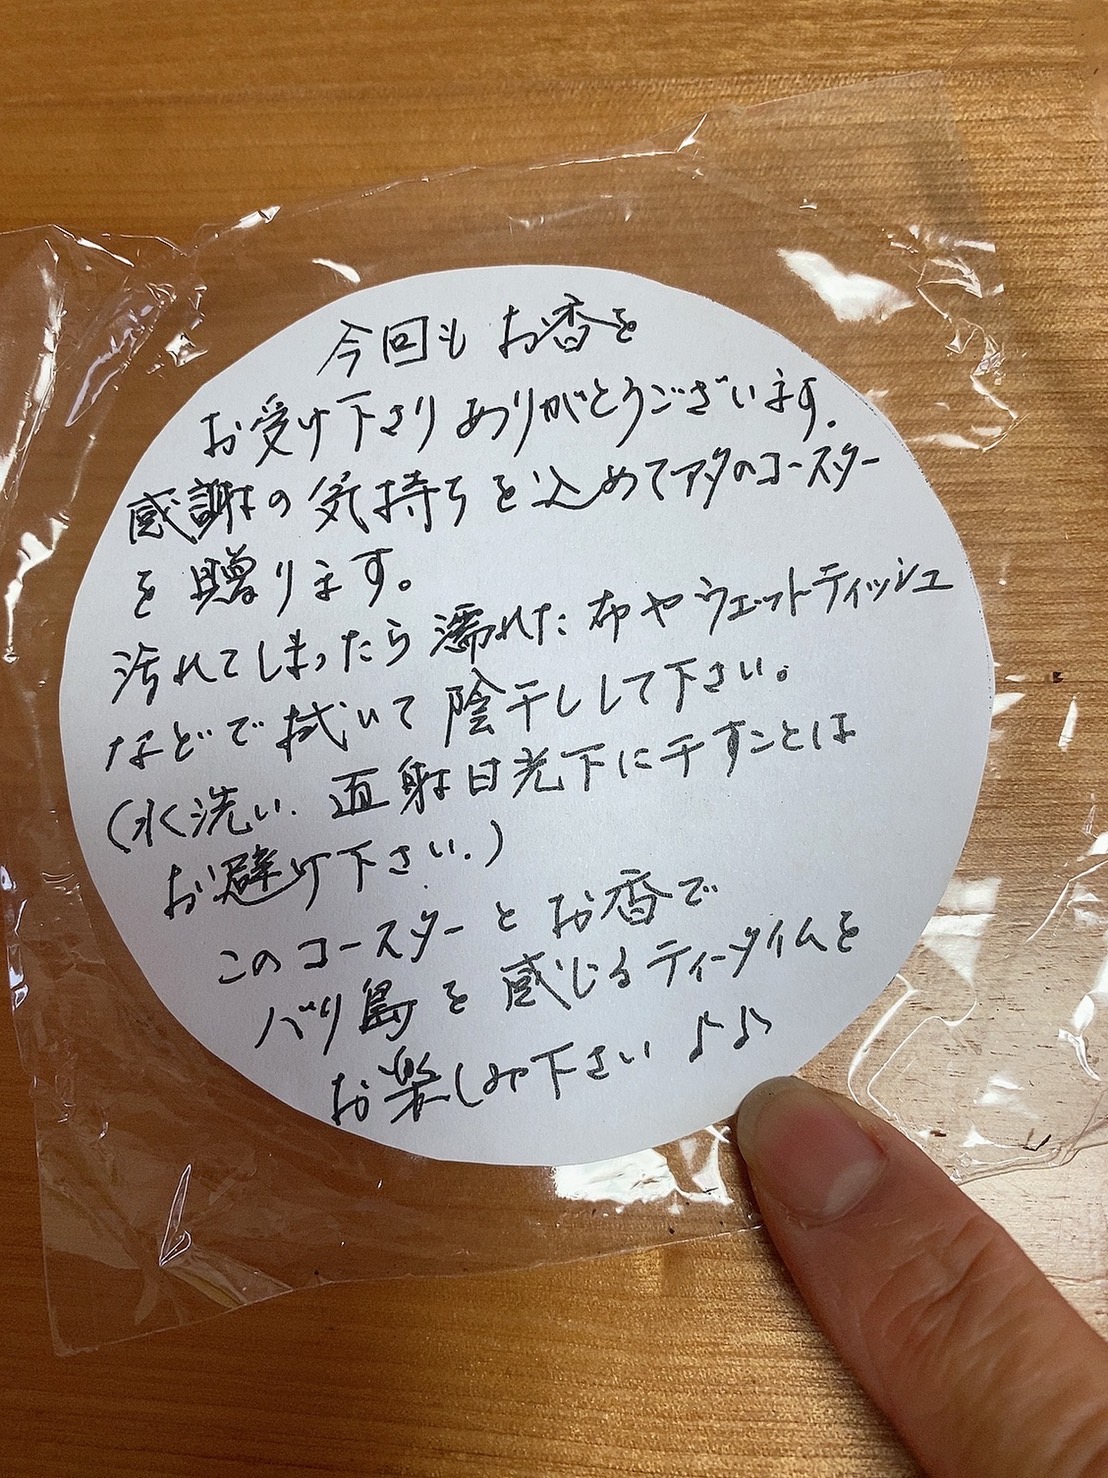 今回も お香を
お受け下さり ありがとうございます.
感謝の気持ちを込めてアタのコースター
を贈ります。
汚れてしまったら濡れた布やウェットティッシュ
などで拭いて陰干しして下さい。
(水洗い、直射日光下に干すことは
お避け下さい.)
このコースターとお香で
バリ島を感じるティータイムを
お楽しみ下さい♪♪